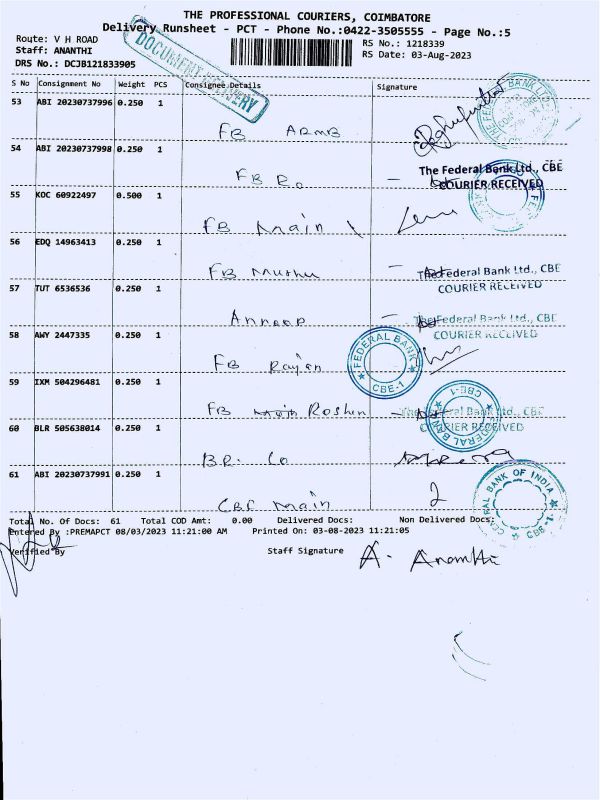 THE PROFESSIONAL COURIERS, COIMBATORE
Delivery Runsheet - PCT - Phone No.:0422-3505555 - Page No.:5
Route: V H ROAD
RS No.: 1218339
Staff: ANANTHI
RS Date: 03-Aug-2023
DRS No.: DCJB121833905
DOCUMENT DELIVERY
S No Consignment No Weight PCS Consignee Details Signature
53 ABI 20230737996 0.250 1
FB ARMB
54 ABI 20230737998 0.250 1
FB Ro
The Federal Bank Ltd., CBE
COURIER RECEIVED
55 KOC 60922497 0.500 1
FB Main
56 EDQ 14963413 0.250 1
FB Muthu
The Federal Bank Ltd., CBE
COURIER RECEIVED
57 TUT 6536536 0.250 1
The Federal Bank Ltd., CBE
COURIER RECEIVED
58 AWY 2447335 0.250 1
FB
FEDERAL BANK
CBE-1
59 IXM 504296481 0.250 1
FB Main Roshin
The Federal Bank Ltd., CBE
COURIER RECEIVED
FEDERAL BANK
CBE-1
60 BLR 505638014 0.250 1
BR. Co
61 ABI 20230737991 0.250 1
CBE Main
CENTRAL BANK OF INDIA
CBE-1
Total No. Of Docs: 61 Total COD Amt: 0.00 Delivered Docs: Non Delivered Docs:
Entered By :PREMAPCT 08/03/2023 11:21:00 AM Printed On: 03-08-2023 11:21:05
Verified By Staff Signature A. Ananthi